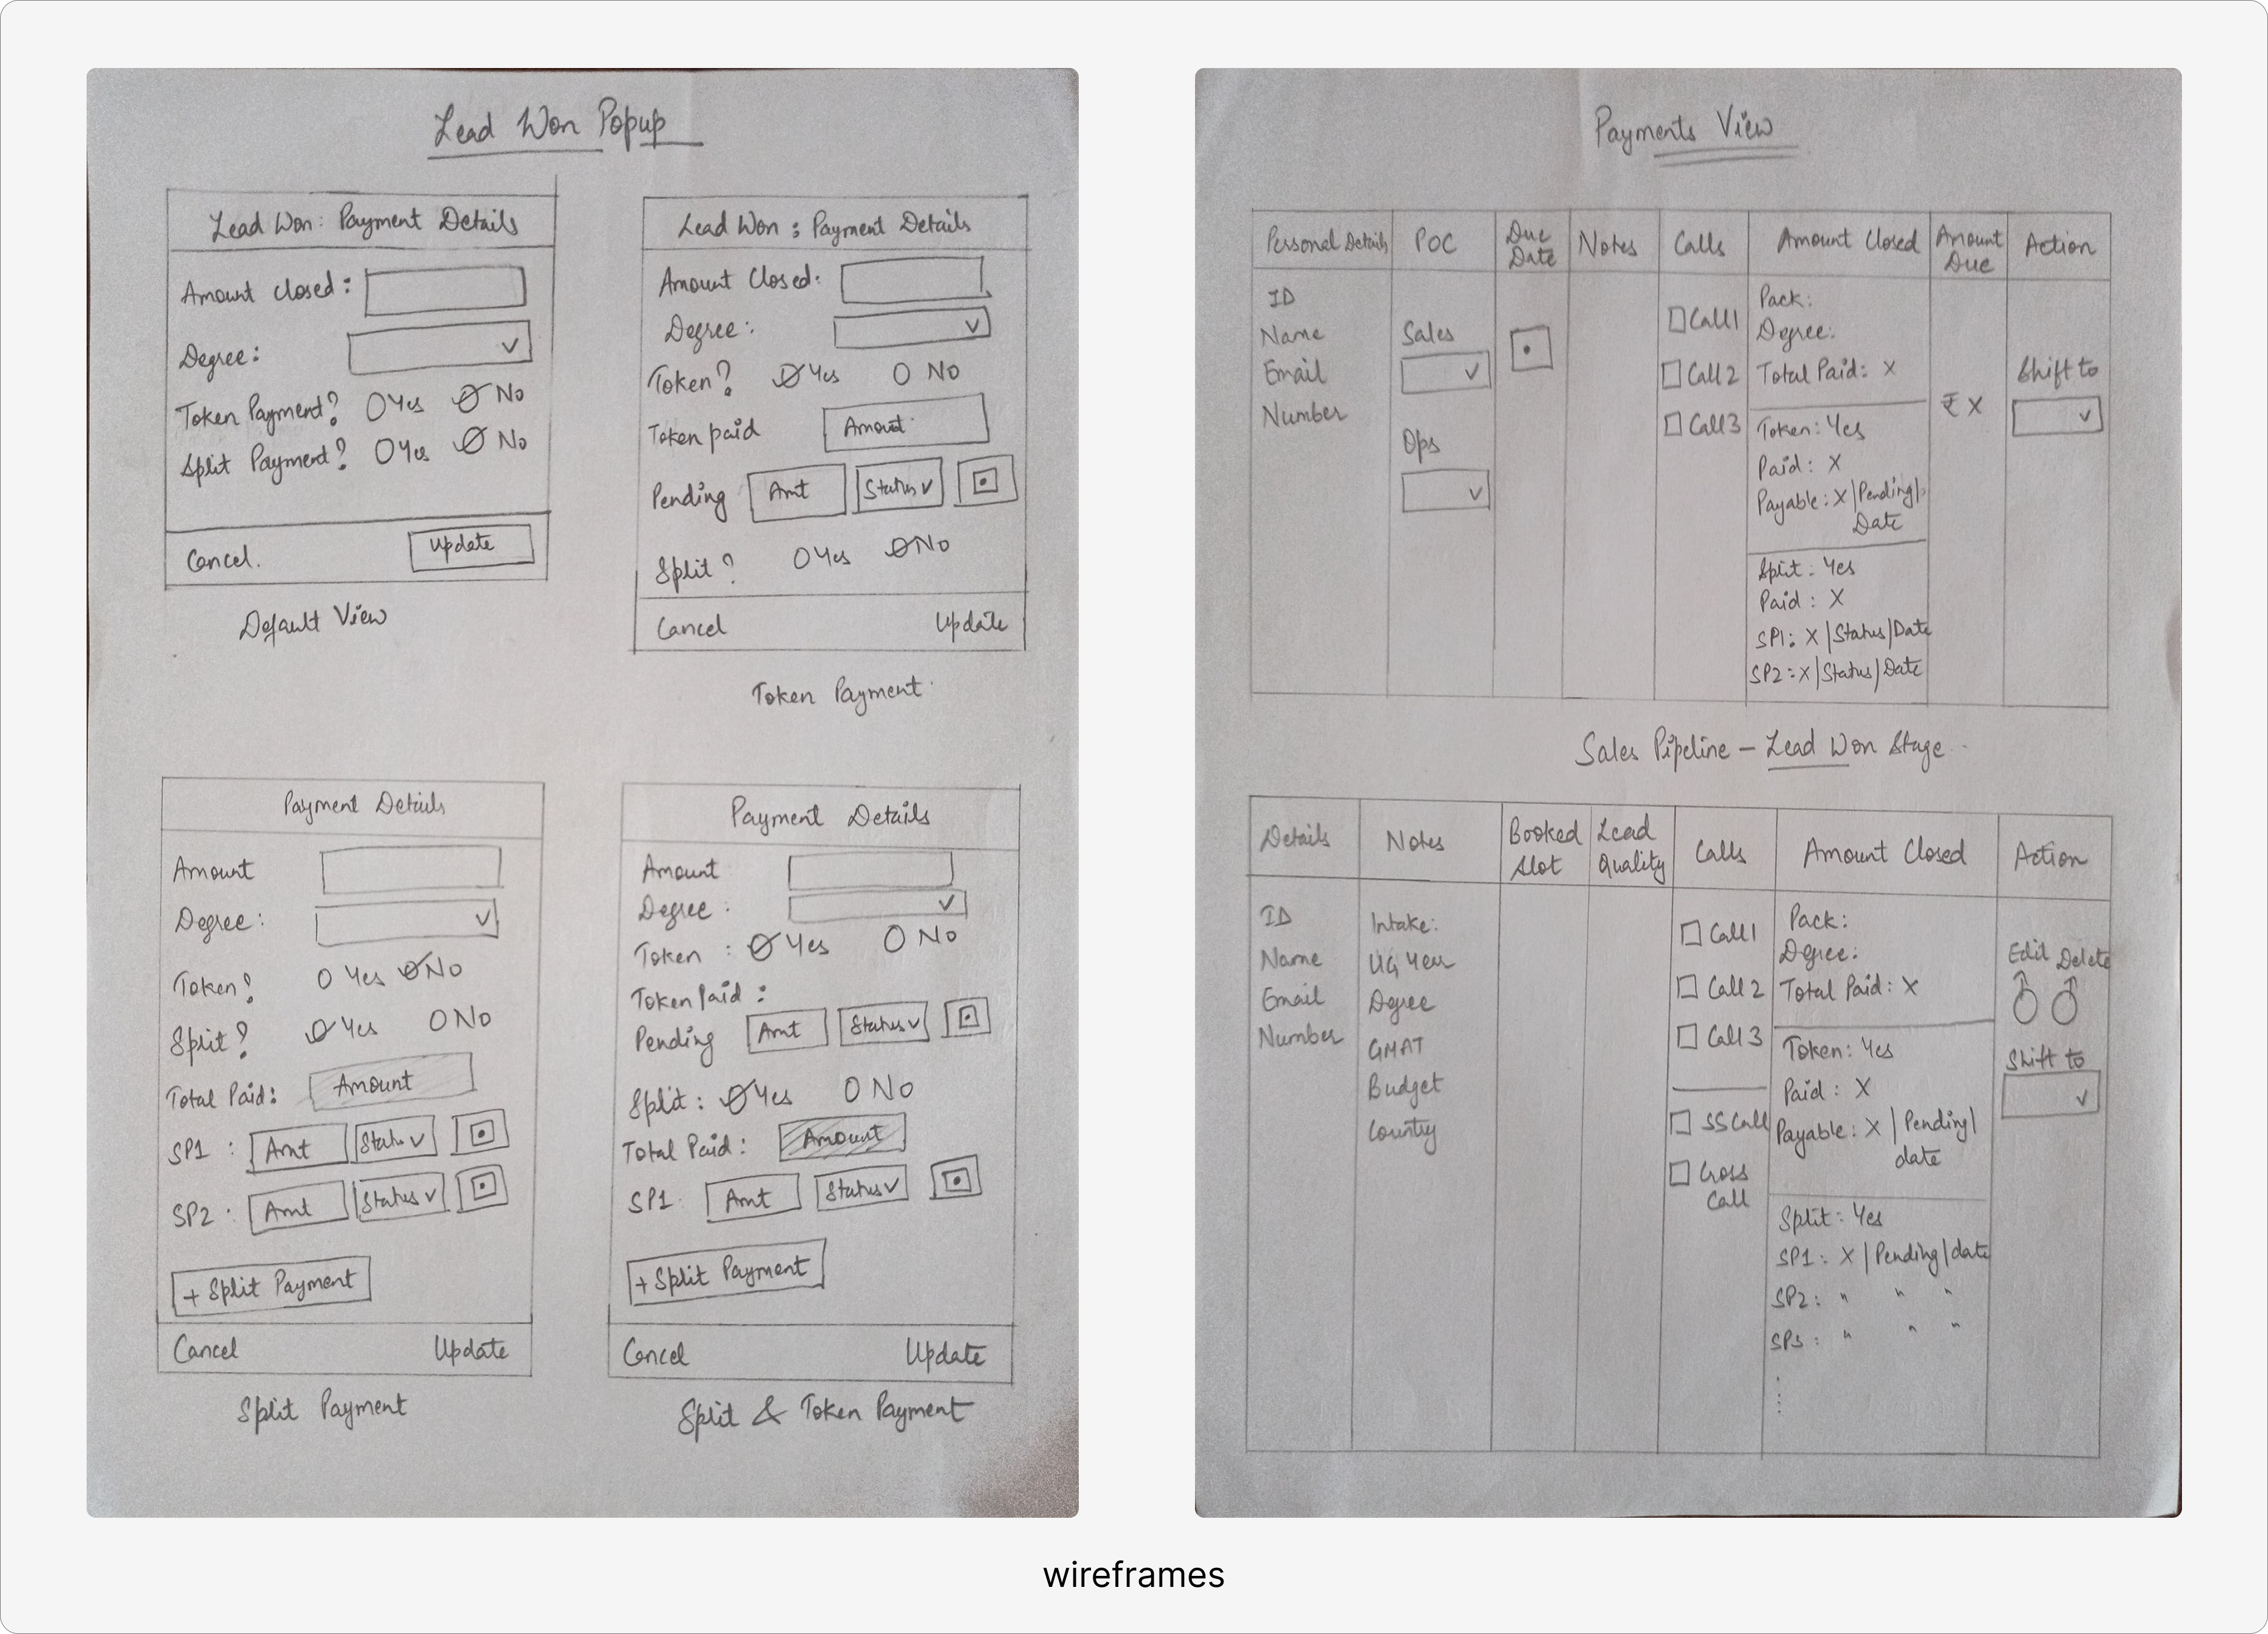 Lead Won Popup
Lead Won: Payment Details
Amount closed:
Degree:
Token Payment? Yes No
Split Payment? Yes No
Cancel. Update
Default View
Lead Won : Payment Details
Amount Closed:
Degree:
Token? Yes No
Token paid Amount
Pending Amt Status
Split? Yes No
Cancel Update
Token Payment
Payment Details
Amount
Degree:
Token? Yes No
Split? Yes No
Total Paid: Amount
SP1 : Amt Status
SP2 : Amt Status
+ Split Payment
Cancel Update
Split Payment
Payment Details
Amount
Degree :
Token : Yes No
Token Paid :
Pending Amt Status
Split : Yes No
Total Paid : Amount
SP1 Amt Status
+ Split Payment
Cancel Update
Split & Token Payment
Payments View
Personal Details POC Due Date Notes Calls Amount Closed Amount Due Action
ID
Name
Email
Number
Sales
Ops
Call1
Call 2
Call 3
Pack:
Degree:
Total Paid: X
Token: Yes
Paid: X
Payable: X | Pending |
Date
Split: Yes
Paid : X
SP1: X | Status | Date
SP2: X | Status | Date
₹ X
Shift to
Sales Pipeline - Lead Won Stage
Details Notes Booked Slot Lead Quality Calls Amount Closed Action
ID
Name
Email
Number
Intake:
UG Year
Degree
GMAT
Budget
Country
Call1
Call 2
Call 3
SS Call
Cross
Call
Pack:
Degree:
Total Paid: X
Token: Yes
Paid : X
Payable: X | Pending |
date
Split: Yes
SP1: X | Pending | date
SP2: " " "
SP3 : " " "
Edit Delete
Shift to
wireframes